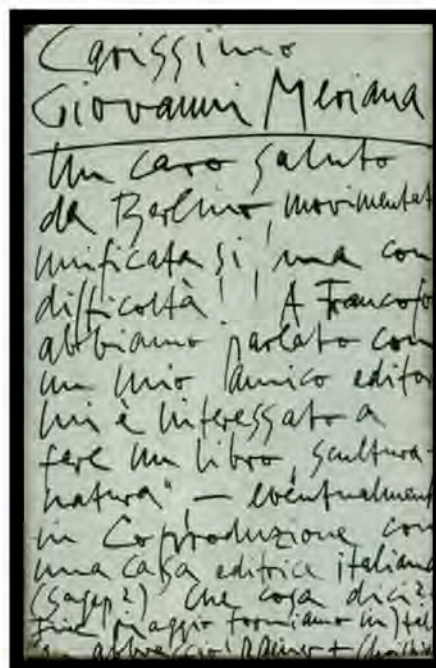 Carissimo
Giovanni Meriana
Un caro saluto
da Berlino, movimentat
unificata si, ma con
difficoltà! A Francofo
abbiamo parlato con
un mio amico editor
lui è interessato a
fare un libro „scultura-
natura" — eventualment
in Coproduzione con
una casa editrice italiana
(Sagep?) Che cosa dici?
Fine maggio torniamo in Ital
un abbraccio! Rainer +